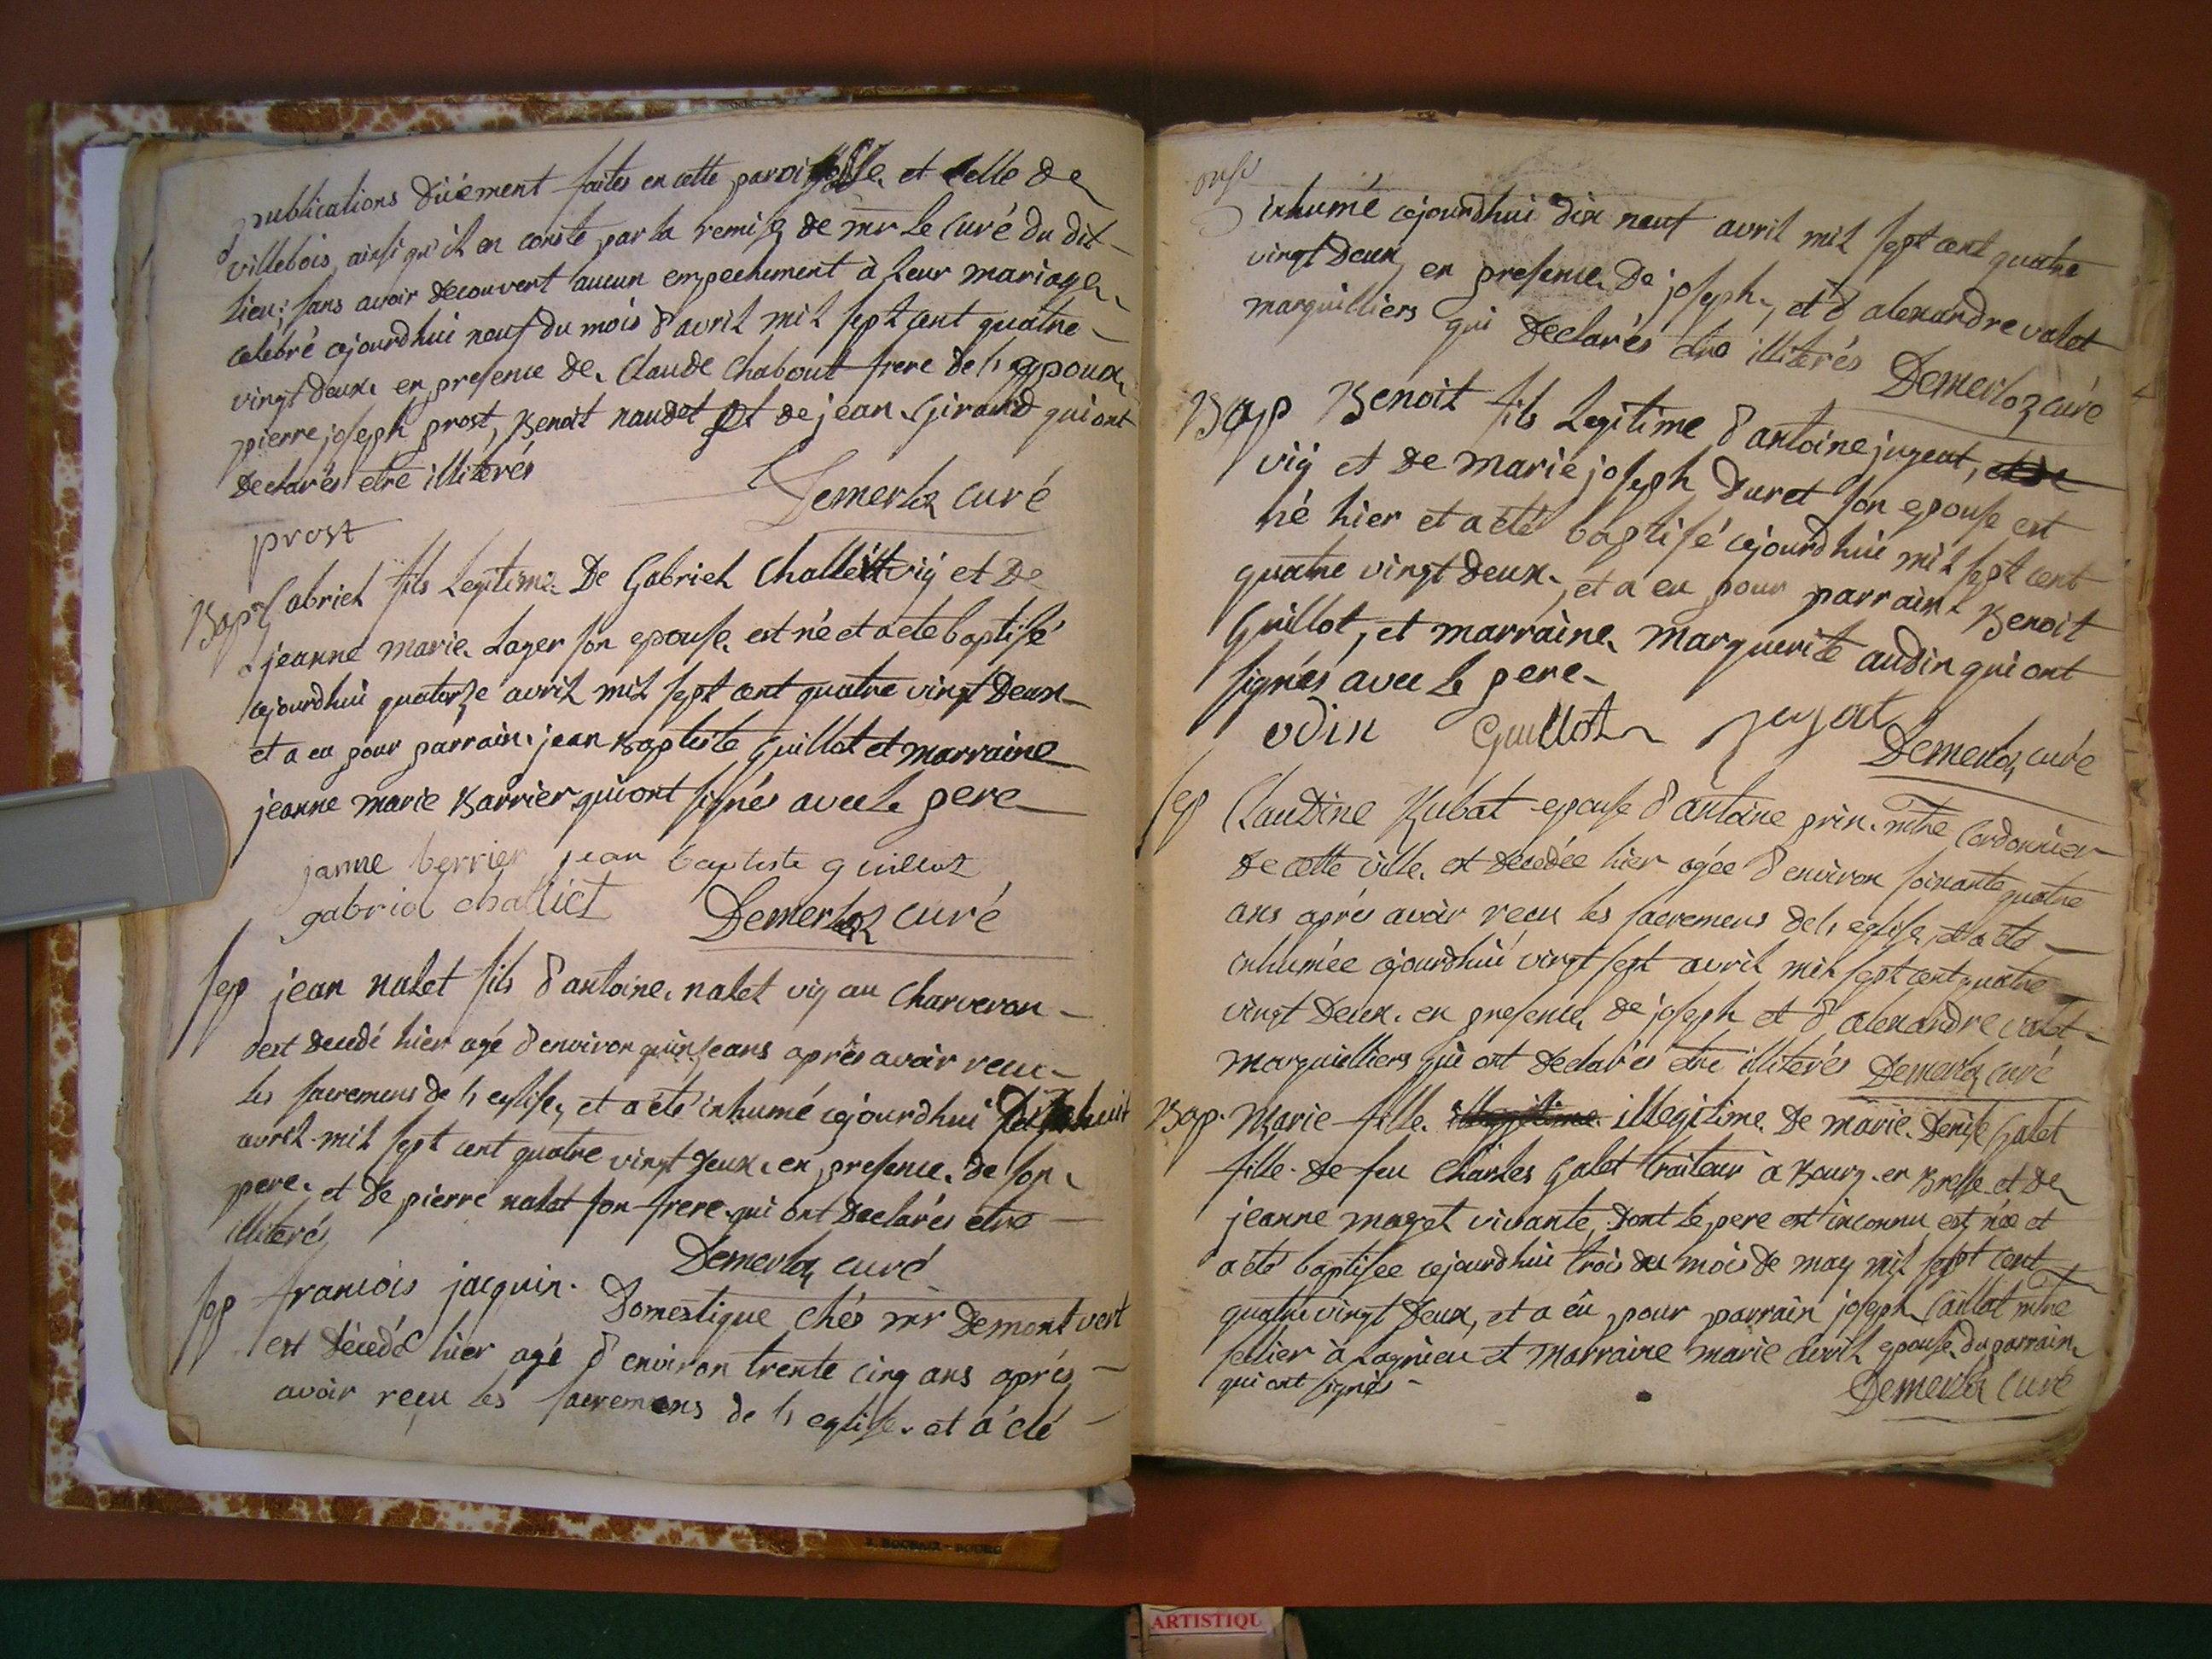 publications düement faites en cette paroisse et celle de
villebois, ainsi qu'il en conste par la remise de mr le curé du dit
lieu; sans avoir decouvert aucun empechement à leur mariage
célébré cejourdhui neuf du mois d'avril mil sept cent quatre
vingt deux en presence de Claude Chabout frere de l'epoux,
pierre joseph prost, Benoit naudet et de jean Giraud qui ont
declarés etre illiterés
Demerloz curé
prost
Bap Gabriel fils legitime De Gabriel Challiet vig et De
jeanne marie Layer son epouse est né et a eté baptisé
cejourdhui quatorze avril mil sept cent quatre vingt Deux
et a eu pour parrain jean Baptiste Guillot et marraine
jeanne marie Barrier qui ont signés avec le pere
janne berrier jean baptiste guilloz
gabriel challiet Demerloz curé
sep jean nalet fils d'antoine nalet vig au Charveron
est decedé hier agé d'environ quinse ans aprés avoir recu
les sacremens de l'eglise, et a été inhumé cejourdhui dix huit
avril mil sept cent quatre vingt deux en presence de son
pere et de pierre nalet son frere qui ont declarés etre
illiterés
Demerloz curé
sep francois jacquin Domestique chés mr Demontvert
est décedé hier agé d'environ trente cinq ans aprés
avoir reçu les sacremens de l'eglise et a été
onse
inhumé cejourdhui dix neuf avril mil sept cent quatre
vingt Deux en presence De joseph, et d'alexandre valet
marguilliers qui declarés etre illiterés Demerloz curé
Bap Benoit fils legitime d'antoine jugeat, et de
vig et de marie joseph duret son epouse est
né hier et a été baptisé cejourdhui mil sept cent
quatre vingt deux, et a eu pour parrain Benoit
Guillot, et marraine marguerite audin qui ont
signés avec le pere
odin Guillot jugat
Demerloz curé
sep Claudine Rubat epouse d'antoine prin mtre Cordonnier
de cette ville est decedée hier agée d'environ soixante quatre
ans aprés avoir recu les sacremens de l'eglise, et a été
inhumée cejourdhui vingt sept avril mil sept cent quatre
vingt Deux en presence de joseph et d'alexandre valet
marguilliers qui ont declarés etre illiterés Demerloz curé
Bap. Marie fille illegitime illegitime De marie Denise Galet
fille de feu Charles galet traiteur à Bourg en Bresse et de
jeanne maget vivante, dont le pere est inconnu, est née et
a été baptisee cejourdhui trois du mois de may mil sept cent
quatre vingt Deux, et a eû pour parrain joseph Caillat mtre
sellier à Lagnieu et marraine marie avril epouse du parrain
qui ont signés
Demerloz Curé
ARTISTIQU